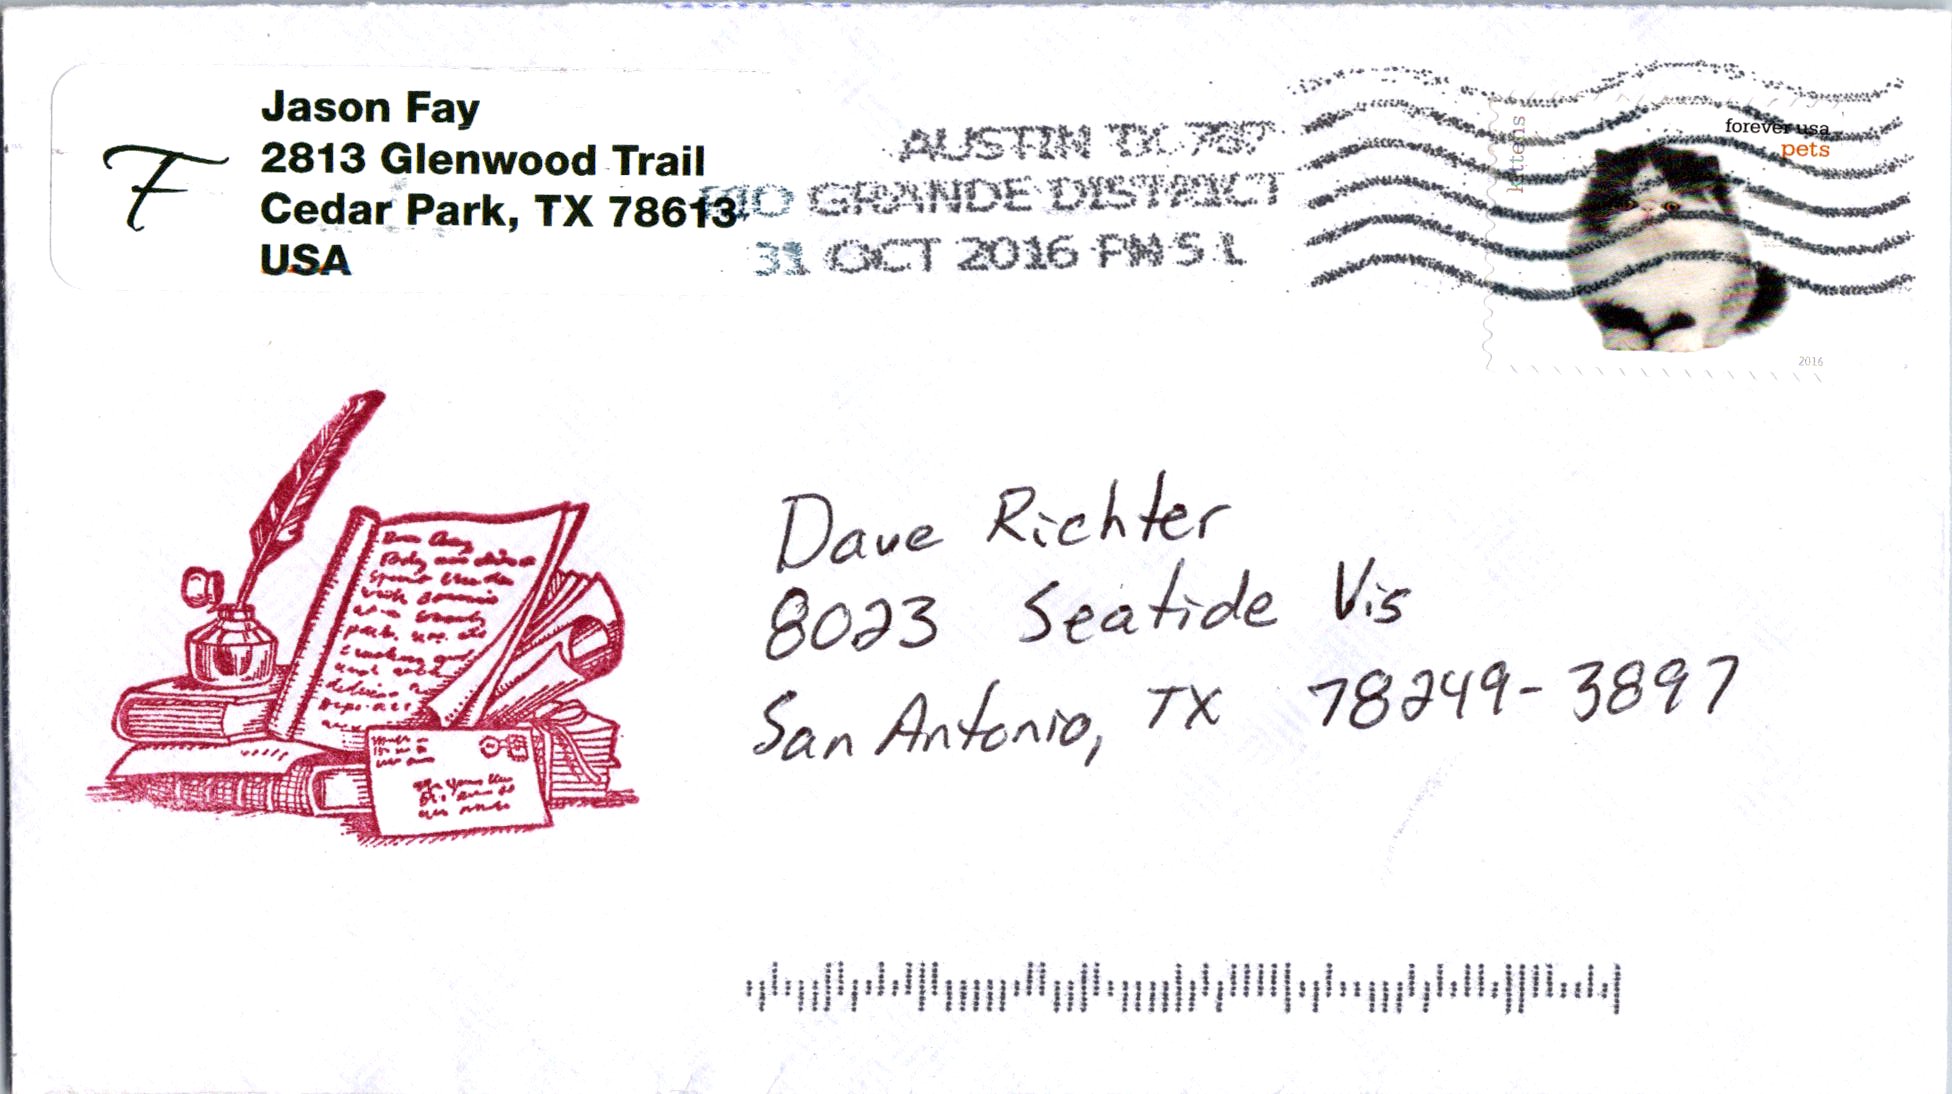 F
Jason Fay
2813 Glenwood Trail
Cedar Park, TX 78613
USA
AUSTIN TX 787
RIO GRANDE DISTRICT
31 OCT 2016 PM 5 L
kittens
forever usa
pets
2016
Dave Richter
8023 Seatide Vis
San Antonio, TX 78249-3897